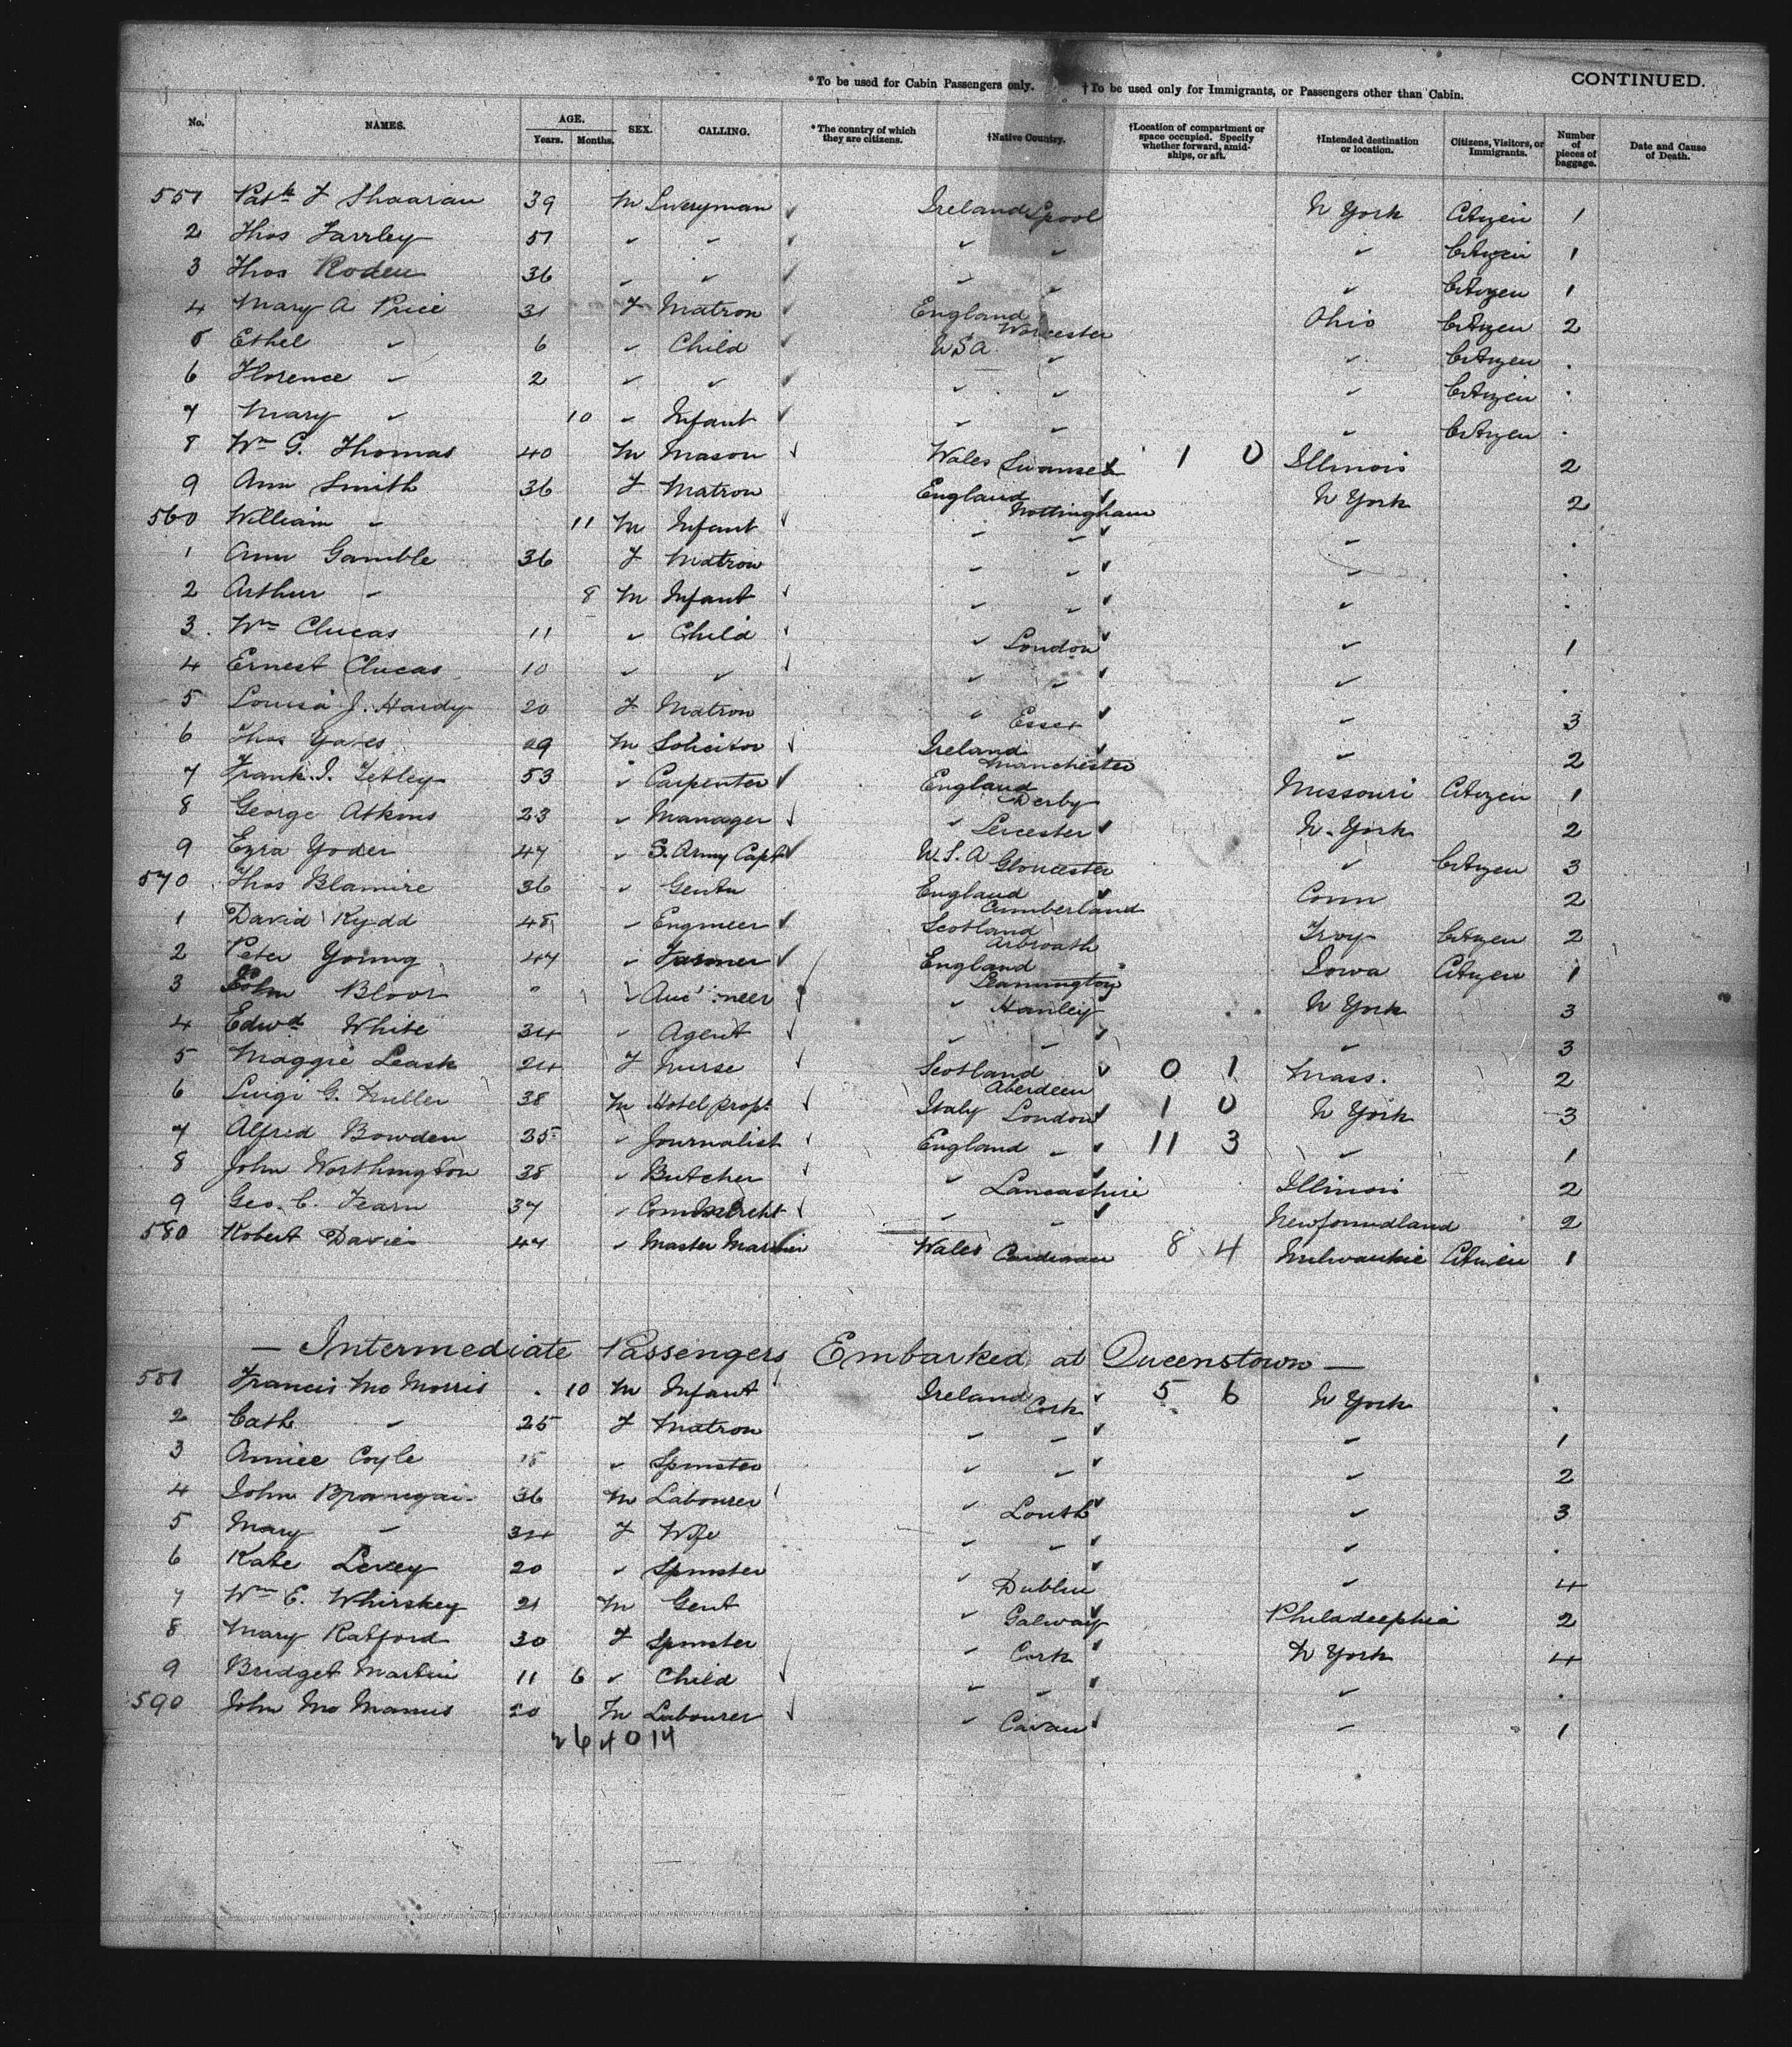 CONTINUED.
*To be used for Cabin Passengers only. †To be used only for Immigrants, or Passengers other than Cabin.
No. NAMES. AGE. Years. Months. SEX. CALLING. *The country of which they are citizens. †Native Country. †Location of compartment or space occupied. Specify whether forward, amidships, or aft. †Intended destination or location. Citizens, Visitors, or Immigrants. Number of pieces of baggage. Date and Cause of Death.
551 Patk J Shaaran 39 M Liveryman ✓ Ireland Lpool N York Citizen 1
2 Thos Farrley 51 " " ✓ " " " Citizen 1
3 Thos Roden 36 " " ✓ " " " Citizen 1
4 Mary A Price 31 F Matron ✓ England Worcester Ohio Citizen 2
5 Ethel " 6 " Child ✓ USA " " Citizen .
6 Florence " 2 " " ✓ " " " Citizen .
7 Mary " 10 " Infant ✓ " " " Citizen .
8 Wm G. Thomas 40 M Mason ✓ Wales Swansea ✓ 1 0 Illinois 2
9 Ann Smith 36 F Matron England Nottingham ✓ N York 2
560 William " 11 M Infant ✓ " " ✓ " .
1 Ann Gamble 36 F Matron " " ✓ " .
2 Arthur " 8 M Infant ✓ " " ✓ " .
3 Wm Clucas 11 " Child ✓ " London ✓ " 1
4 Ernest Clucas 10 " " ✓ " " ✓ " .
5 Louisa J. Hardy 20 F Matron " Essex ✓ " 3
6 Thos Yates 29 M Solicitor ✓ Ireland Manchester ✓ " 2
7 Frank J. Tetley 53 " Carpenter ✓ England Derby Missouri Citizen 1
8 George Atkins 23 " Manager ✓ " Leicester ✓ N. York 2
9 Ezra Yoder 47 " S. Army Capt ✓ U.S.A Gloucester " Citizen 3
570 Thos Blamire 36 " Gentn England Cumberland ✓ Conn 2
1 David Kydd 48 " Engineer ✓ Scotland Arbroath Troy Citizen 2
2 Peter Young 47 " Farmer ✓ England Leamington Iowa Citizen 1
3 John Bloor " " neer ✓ " Hanley N York 3
4 Edwd White 34 " Agent ✓ " " ✓ " 3
5 Maggie Leask 24 F Nurse ✓ Scotland Aberdeen ✓ 0 1 Mass. 2
6 Luigi G. Miller 38 M Hotel propt ✓ Italy London ✓ 1 0 N York 3
7 Alfred Bowden 35 " Journalist ✓ England " ✓ 11 3 " 1
8 John Worthington 38 " Butcher ✓ " Lancashire ✓ Illinois 2
9 Geo. C. Fearn 37 " ✓ " " ✓ Newfoundland 2
580 Robert Davies 47 " Master Mariner Wales Cardigan 8 4 Milwaukie Citizen 1
— Intermediate Passengers Embarked at Queenstown —
581 Francis Mc Morris . 10 M Infant Ireland Cork ✓ 5 6 N York .
2 Cath " 25 F Matron " " ✓ " 1
3 Annie Coyle 18 " Spinster " " ✓ " 2
4 John Branegan 36 M Labourer " Louth ✓ " 3
5 Mary " 34 F Wife " " ✓ " .
6 Kate Levey 20 " Spinster " Dublin ✓ " 4
7 Wm E. Whirskey 21 M Gent " Galway ✓ Philadelphia 2
8 Mary Ratford 30 F Spinster " Cork ✓ N York 4
9 Bridget Martin 11 6 " Child ✓ " " ✓ " .
590 John Mc Manus 20 M Labourer ✓ " Cavan ✓ " 1